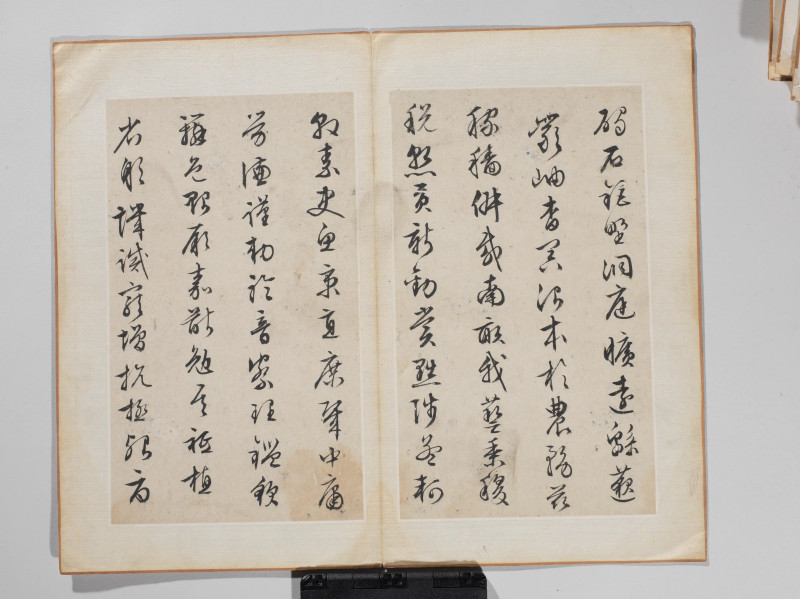 碣石鉅野洞庭曠遠緜邈
巖岫杳冥治本於農務茲
稼穡俶載南畝我藝黍稷
稅熟貢新勸賞黜陟孟軻
敦素史魚秉直庶幾中庸
勞謙謹勅聆音察理鑑貌
辯色貽厥嘉猷勉其祗植
省躬譏誡寵增抗極殆辱